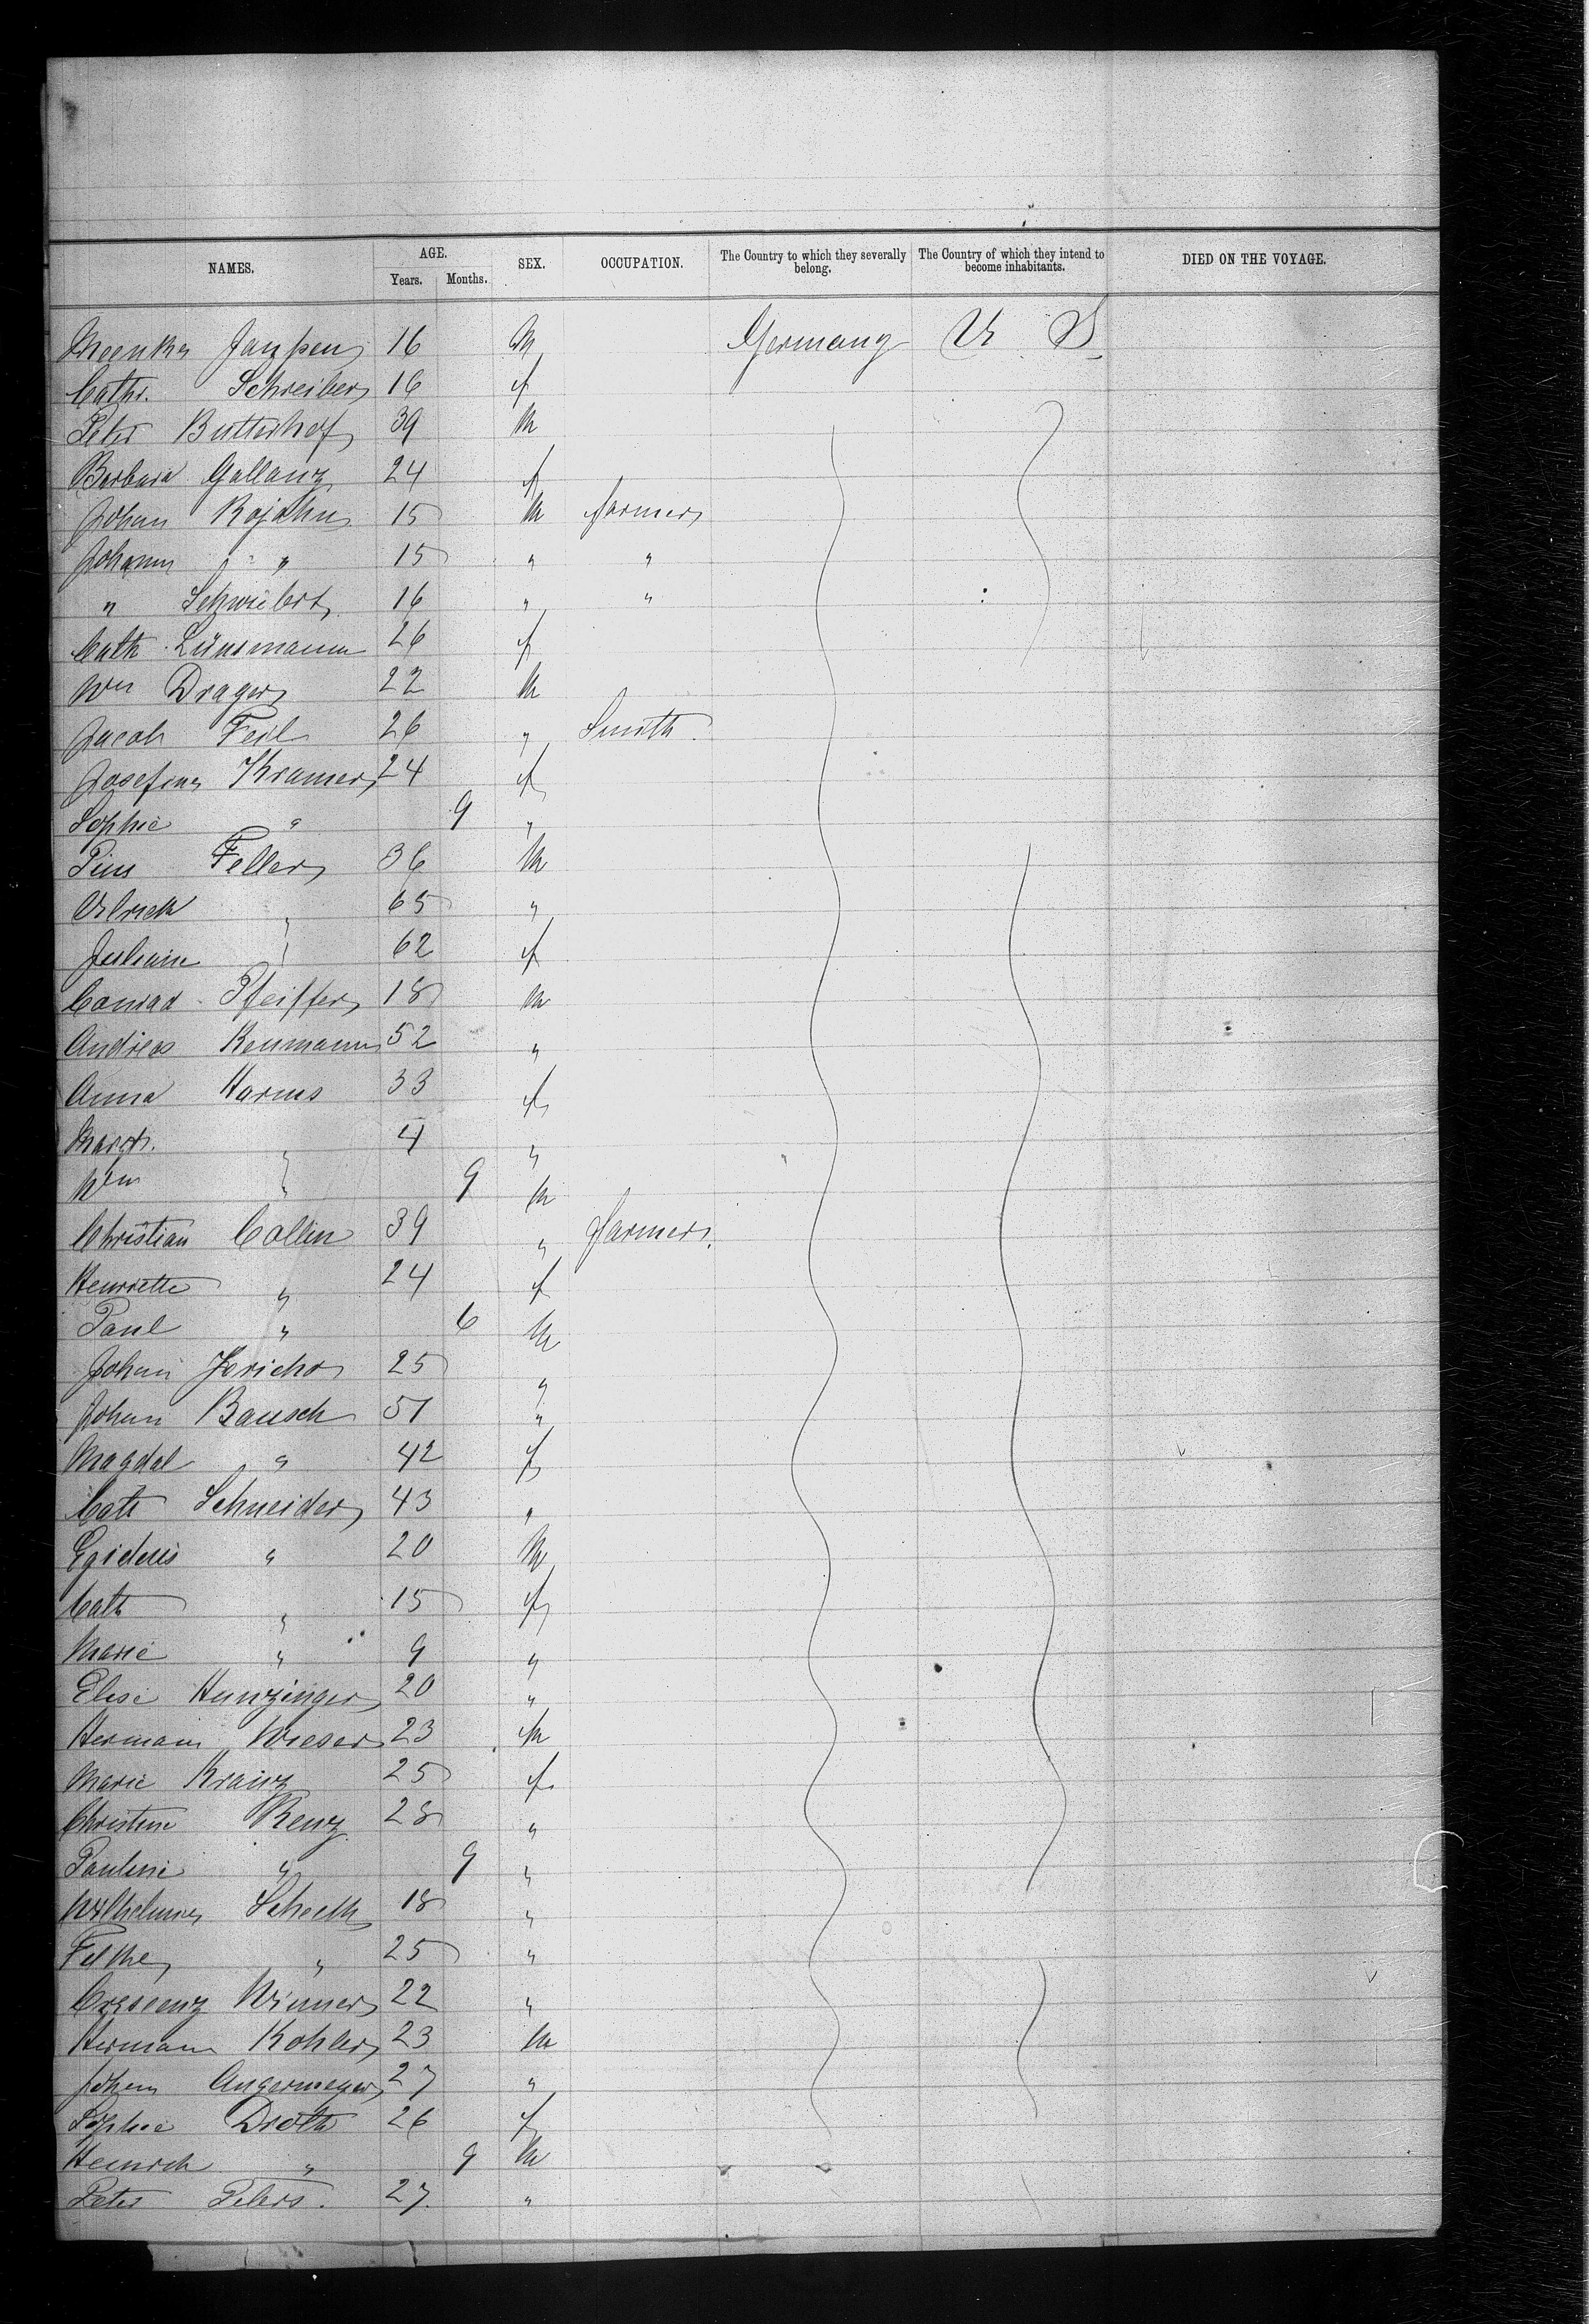 NAMES. AGE. SEX. OCCUPATION. The Country to which they severally belong. The Country of which they intend to become inhabitants. DIED ON THE VOYAGE.
Years. Months.
Meenke Janssen 16 M Germany U S
Cathr. Schreiber 16 f
Peter Butterhof 39 M
Barbara Gallanz 24 f
Johan Rojahn 15 M farmer
Johann " 15 " "
" Schwiebert 16 " "
Cath Lünsmann 26 f
Wm Drager 22 M
Jacob Feil 26 " Smith
Josefine Kramer 24 f
Sophie " 9 "
Pius Feller 36 M
Ulrich " 65 "
Juliane " 62 f
Conrad Pfeiffer 18 M
Andreas Renmann 52 "
Anna Harms 33 f
Margr. " 4 "
Wm " 9 M
Christian Collin 39 " farmer
Henriette " 24 f
Paul " 6 M
Johan Jericho 25 "
Johan Bausch 51 "
Magdal " 42 f
Cath Schneider 43 "
Egideus " 20 M
Cath " 15 f
Marie " 9 "
Elise Hunzinger 20 "
Hermann Wieser 23 M
Marie Krainz 25 f
Christine Renz 28 "
Pauline " 9 "
Wilhelmine Scheelk 18 "
Felke " 25 "
Crescenz Winner 22 "
Herman Kohler 23 M
Johan Angermeyer 27 "
Sophie Droth 26 f
Heinrich " 9 M
Peter Peters. 27. "